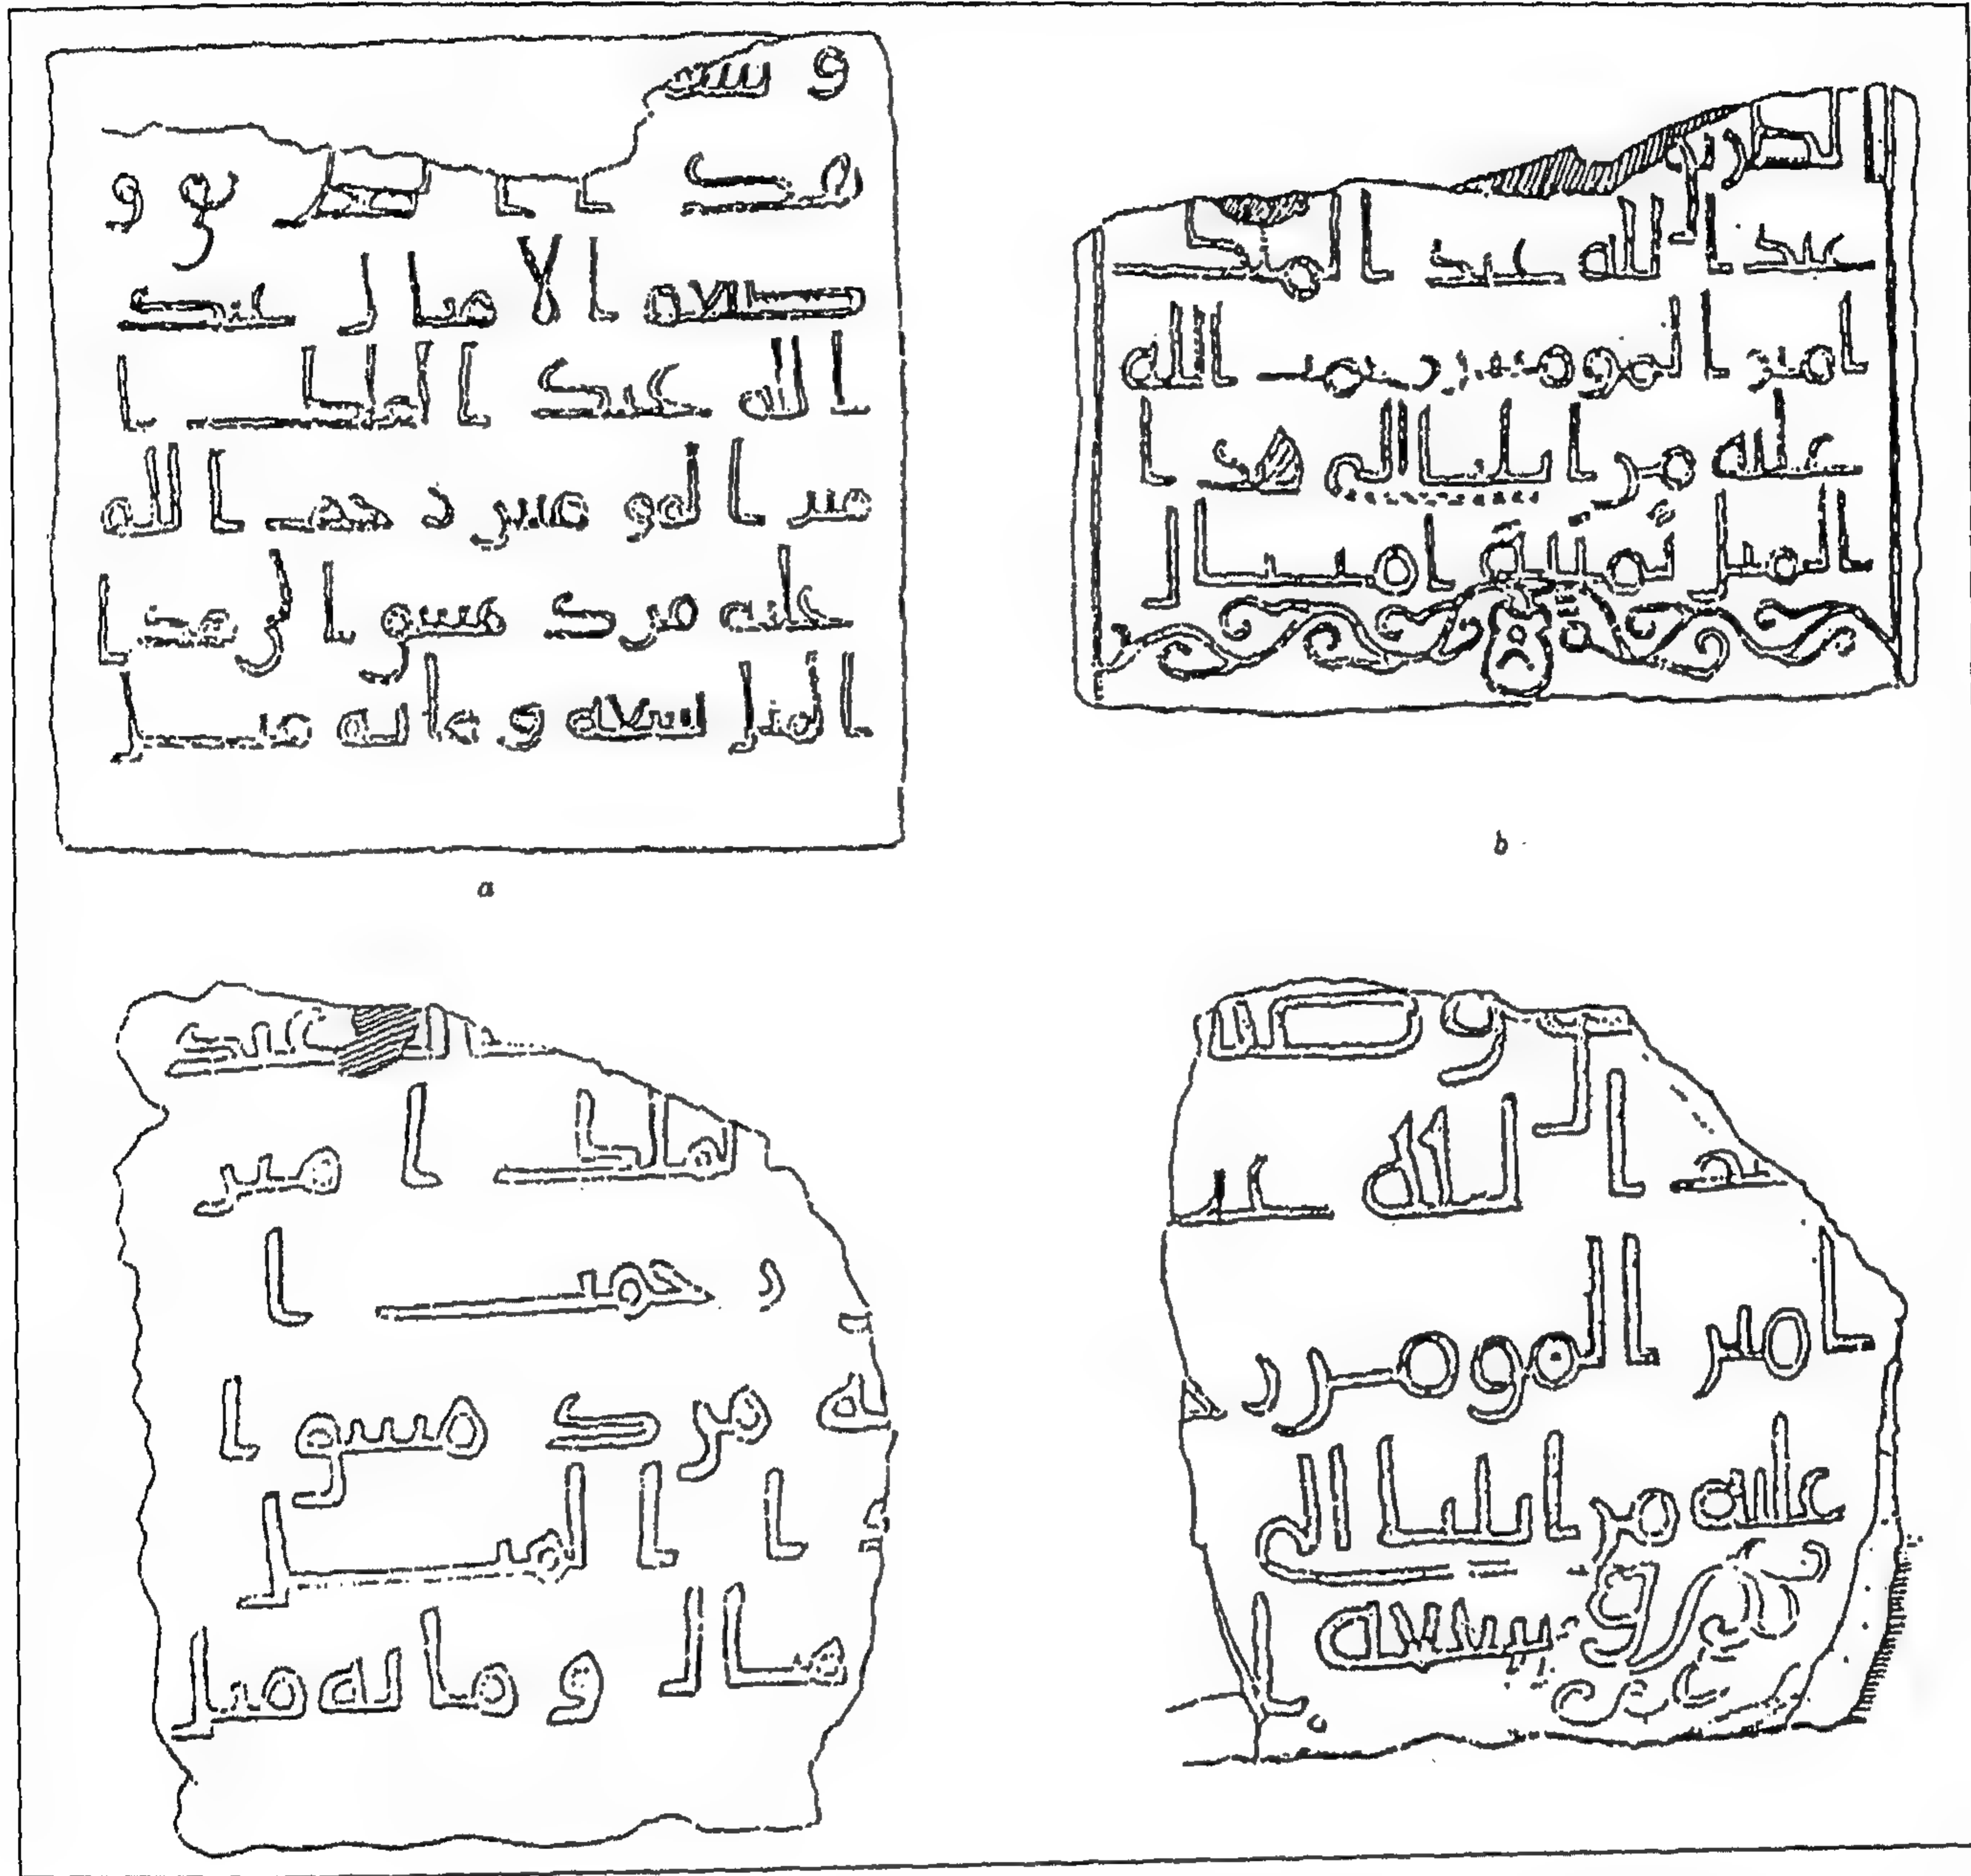 و سهـ
الطر يق و
صنعة الاميال عبد
الله عبد الملك ا
مير المومنين رحمت الله
عليه من دمشق الى هذا
الميل تسعة و مائة ميل
b
عبد الله عبد الملك
امير المومنين رحمت الله
عليه من ايليا الى هذا
الميل ثمنية اميال
a
عبد
الملك ا مير
رحمت ا
له من دمشق ا
ا الميل
ثمان و مائة ميل
الله عبد
امير المومنين ر
عليه من ايليا الى